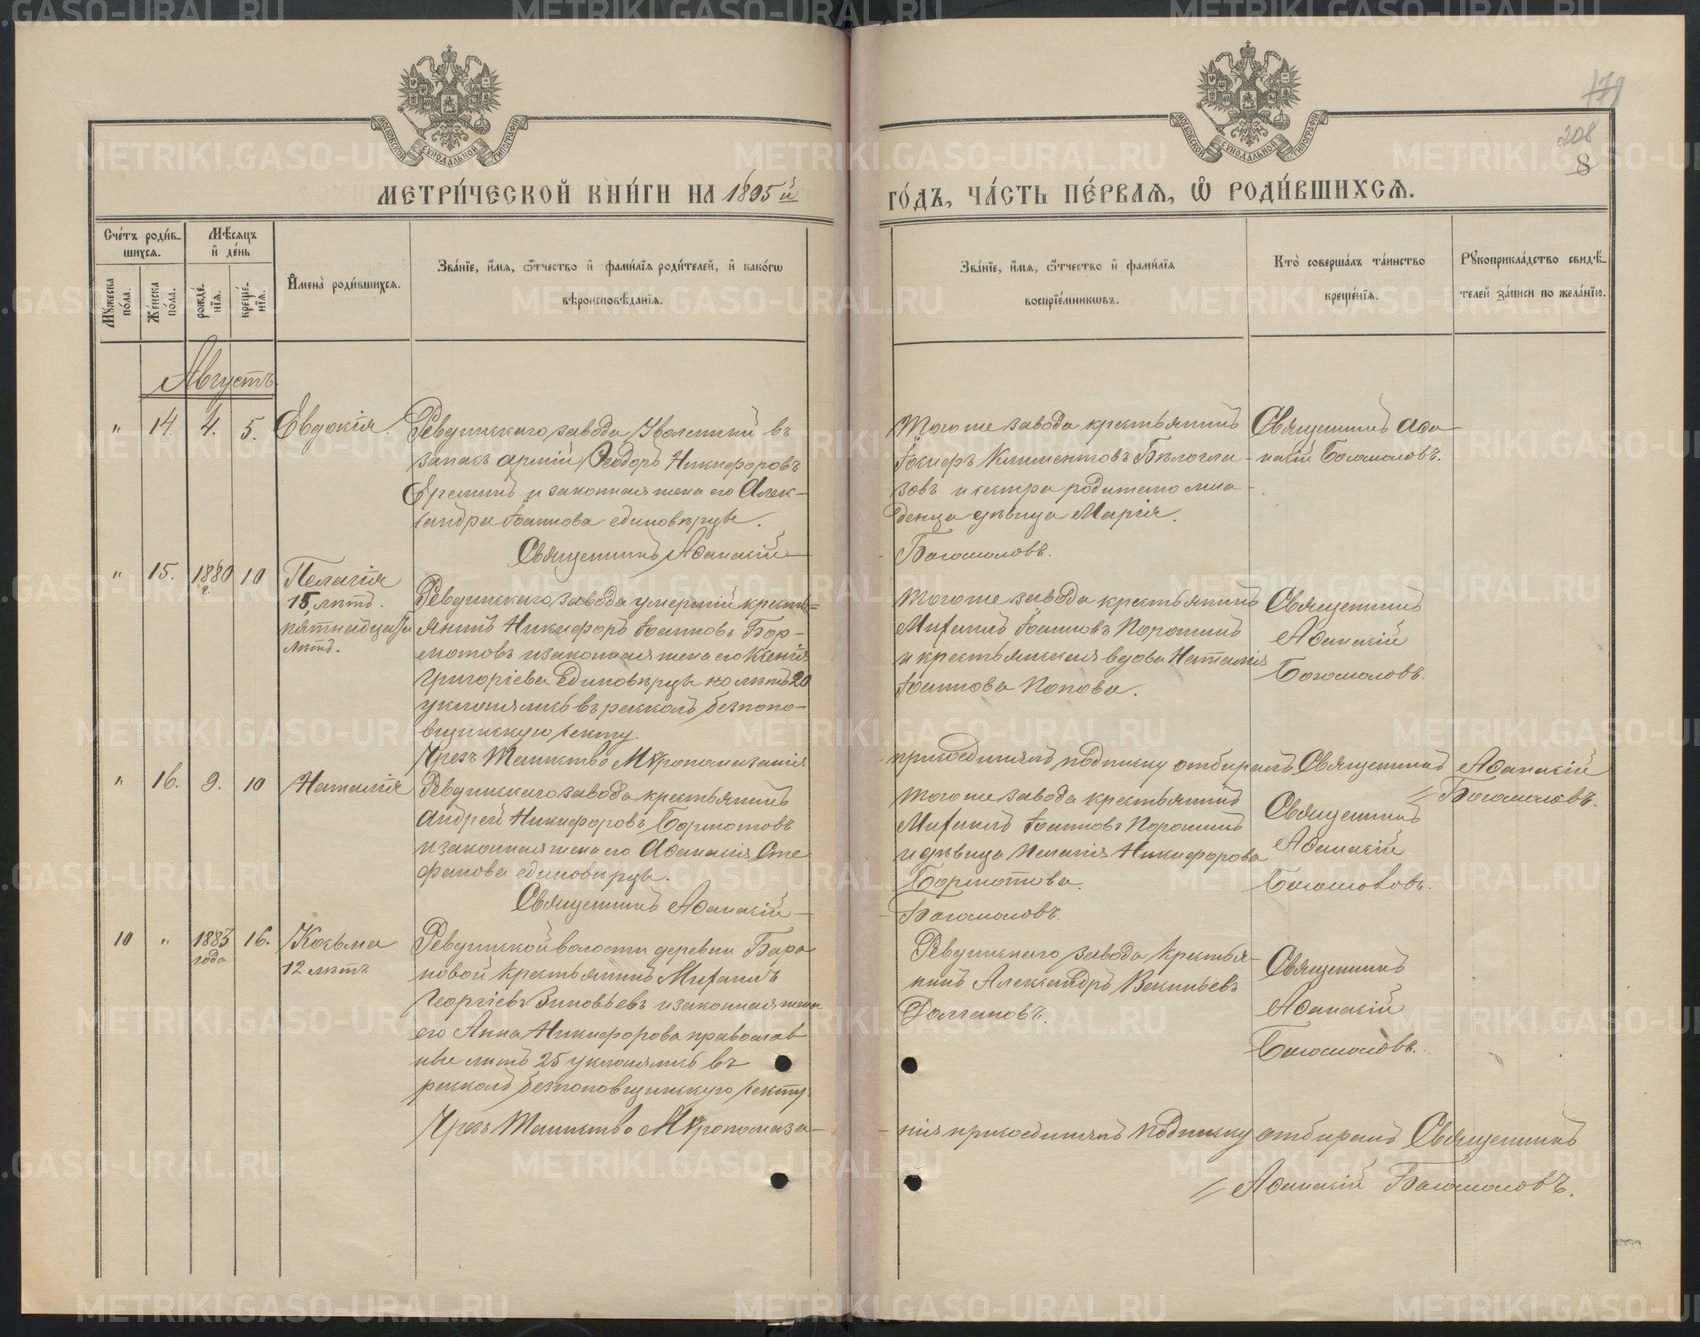 179
208
8
МЕТРИ́ЧЕСКОЙ КНИ́ГИ НА 1895й
ГО́ДЪ, ЧА́СТЬ ПЕ́РВАЯ, Ѿ РОДИ́ВШИХСЯ.
Сче́тъ роди́в-
шихся.
Мѣ́сяцъ
и҆ де́нь
Мꙋ́жеска по́ла.
Же́нска по́ла.
рожде́-
нїѧ.
креще́-
нїѧ.
И҆мена̀ роди́вшихся.
Зва́нїе, и҆́мя, ѻ҆́тчество и҆ фами́лїя роди́телей, и҆ како́гѡ
вѣроисповѣ́данїя.
Зва́нїе, и҆́мя, ѻ҆́тчество и҆ фами́лїя
воспрїе́мниковъ.
Кто̀ соверша́лъ та́инство
креще́нїя.
Рꙋкоприкла́дство свидѣ́-
телей за́писи по жела́нїю.
Августъ
" 14. 4. 5. Евдокія.
Ревдинскаго завода Уволенный въ
запасъ арміи Ѳеодоръ Никифоровъ
и законная жена его Алек-
сандра Іоаннова единовѣрцы.
Священникъ Аѳанасій
Тогоже завода крестьянинъ
Климентовъ Бѣлогла-
зовъ и сестра родителю мла-
денца дѣвица Марія.
Богомоловъ.
Священникъ Аѳа-
насій Богомоловъ.
" 15. 1880 г. 10 Пелагія
15, лѣтъ.
пятнадцати
лѣтъ.
Ревдинскаго завода умершій кресть-
янинъ Никифоръ Іоанновъ Бор-
мотовъ и законная жена его Ксенія
Григоріева Единовѣрцы но лѣтъ 20
уклонялись въ расколъ безпопо-
вщинскую секту.
Чрезъ Таинство Мѵропомазанія
Тогоже завода крестьянинъ
Михаилъ Іоанновъ Порошинъ
и крестьянская вдова Наталія
Іоаннова Попова.
присоединялъ подписку отбиралъ Священникъ Аѳанасій
Богомоловъ.
Священникъ
Аѳанасій
Богомоловъ.
" 16. 9. 10 Наталія
Ревдинскаго завода крестьянинъ
Андрей Никифоровъ Бормотовъ
и законная жена его Аѳанасія Сте
фанова единовѣрцы.
Священникъ Аѳанасій
Тогоже завода крестьянинъ
Михаилъ Іоанновъ Порошинъ
и дѣвица Пелагія Никифорова
Бормотова.
Богомоловъ.
Священникъ
Аѳанасій
Богомоловъ.
10 " 1883 года 16. Косьма
12 лѣтъ
Ревдинской волости деревни Бара
новой крестьянинъ Михаилъ
Георгіевъ Зиновьевъ и законная жена
его Анна Никифорова православ
ные лѣтъ 25 уклонялись въ
расколъ безпоповщинскую секту.
Чрезъ Таинство Мѵропомаза-
Ревдинскаго завода Крестья-
нинъ Александръ
Долгановъ.
нія присоединялъ подписку отбиралъ Священникъ
Аѳанасій Богомоловъ.
Священникъ
Аѳанасій
Богомоловъ.
METRIKI.GASO-URAL.RU